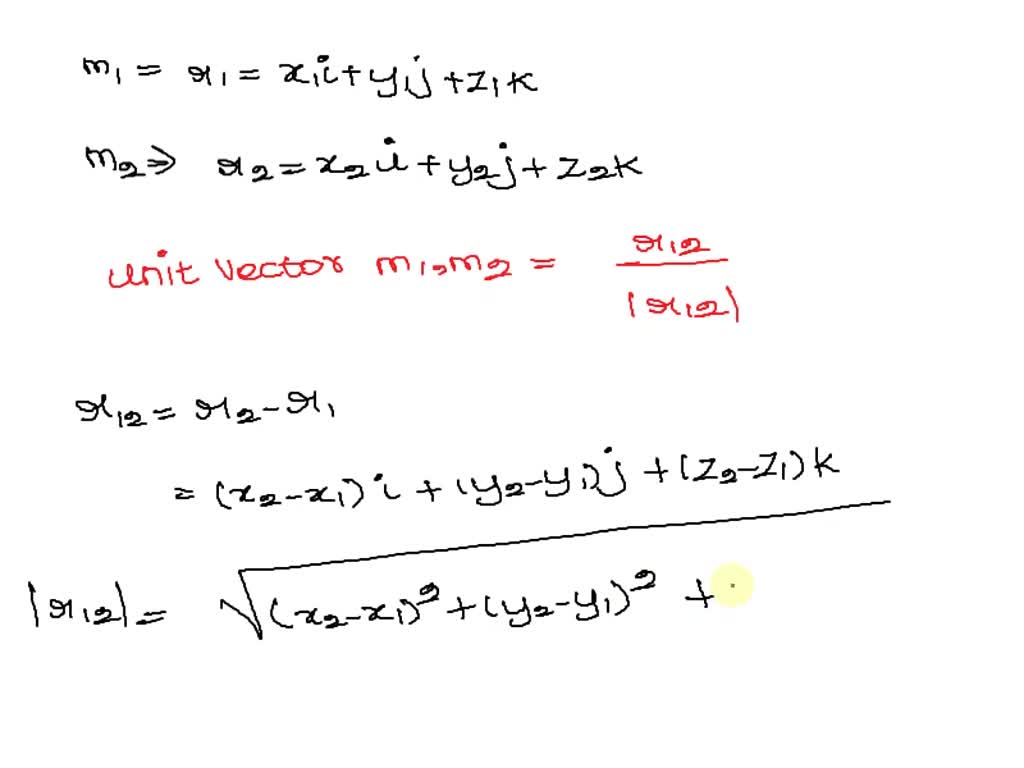 m1 = r1 = x1i + y1j + z1k
m2 ⇒ r2 = x2i + y2j + z2k
unit vector m1,m2 = r12 / |r12|
r12 = r2 - r1
= (x2-x1)i + (y2-y1)j + (z2-z1)k
|r12| = √(x2-x1)² + (y2-y1)² +